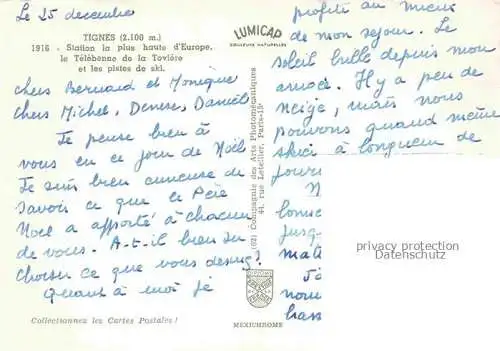 Le 25 decembre
TIGNES (2.100 m.)
1916 - Station la plus haute d'Europe,
le Télébenne de la Tovière
et les pistes de ski.
LUMICAP
COULEURS NATURELLES
chers Bernard et Monique
chers Michel, Denise, Daniel
Je pense bien à
vous en ce jour de Noël
Je suis bien curieuse de
savoir ce que ce Père
Noel a apporté à chacun
de vous. A-t-il bien su
choisir ce que vous desirez?
Quant à moi je
profite au mieux
de mon sejour. Le
soleil brille depuis mon
arrivée. Il y a peu de
neige, mais nous
pouvons quand même
skier à longueur de
jour
N
jusq
mati
J'a
nou
bass
(62) Compagnie des Arts Photomécaniques
44, rue Letellier, Paris-15e
privacy protection
Datenschutz
Collectionnez les Cartes Postales !
MEXICHROME